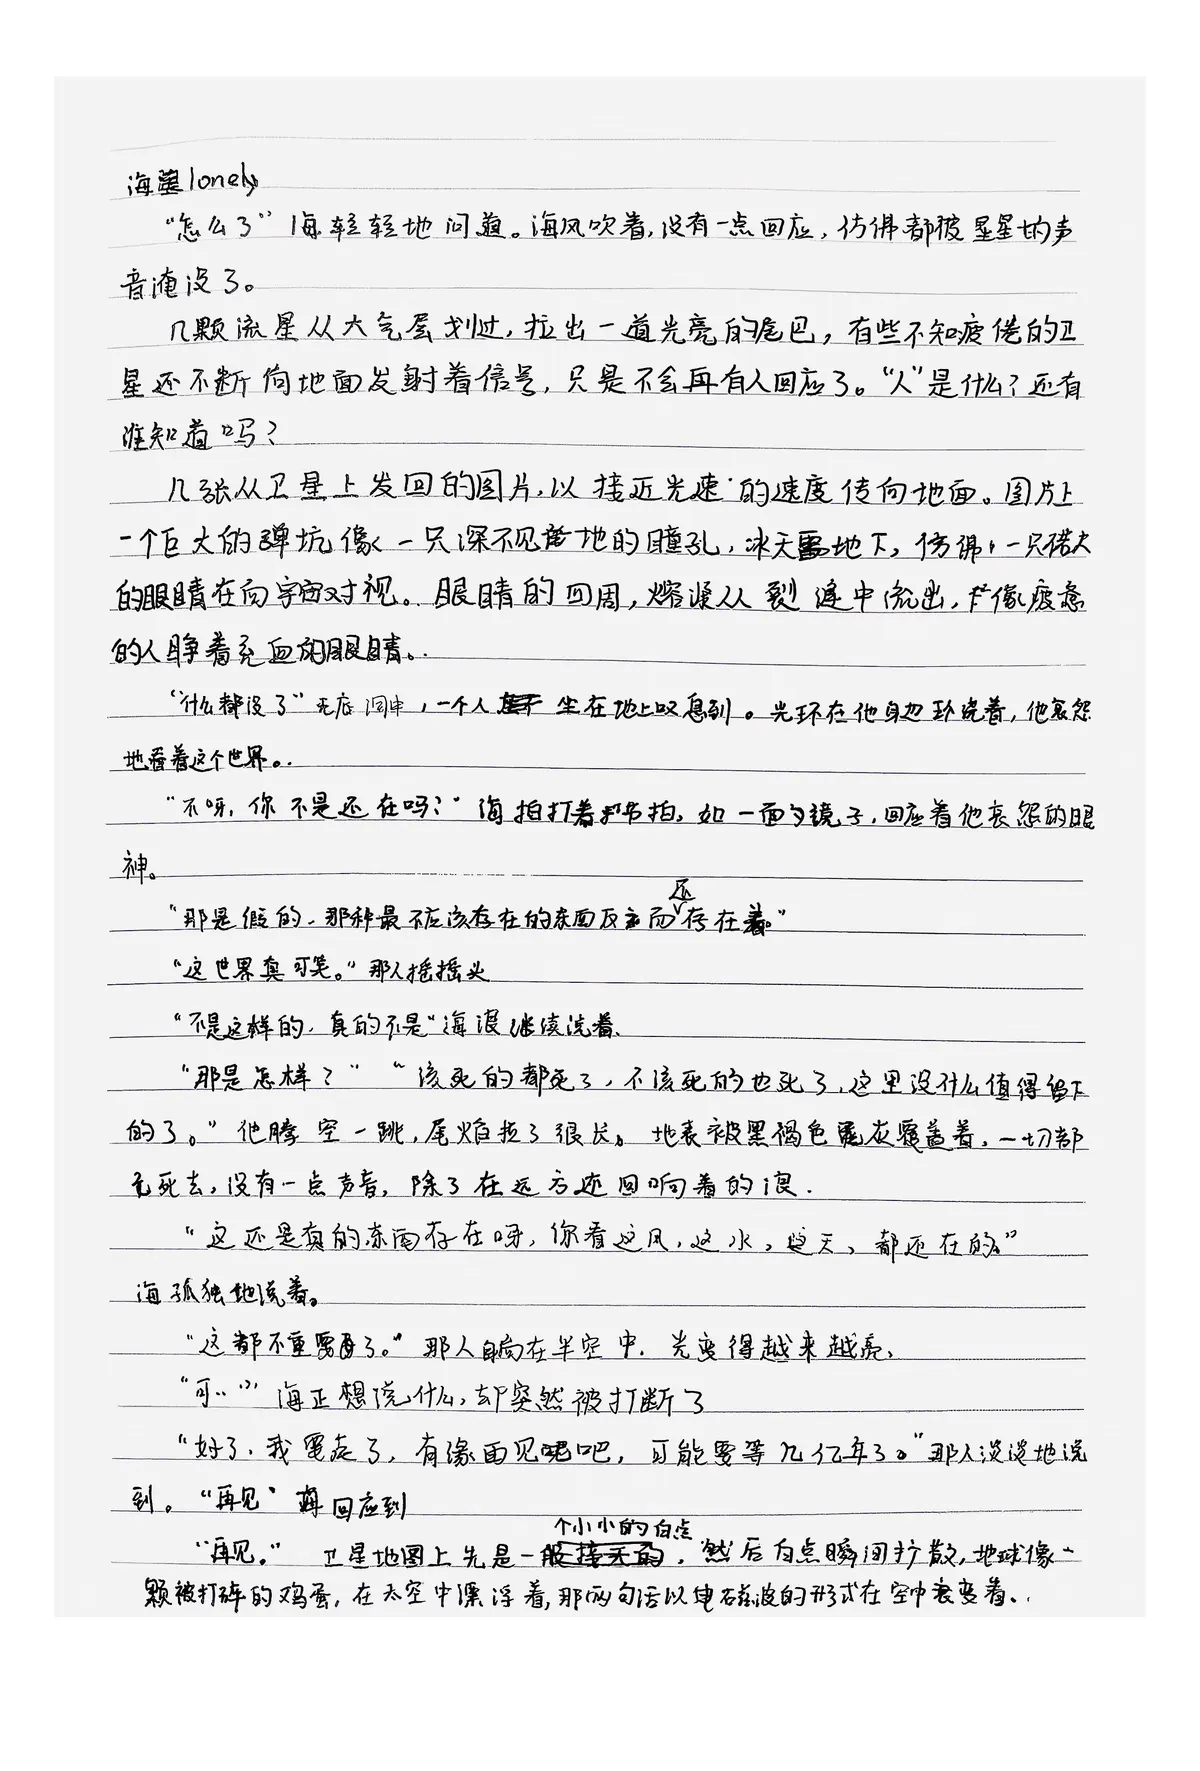 海星lonely
“怎么了”海轻轻地问道。海风吹着,没有一点回应,仿佛都被星星的声
音淹没了。
几颗流星从大气层划过,拉出一道光亮的尾巴,有些不知疲倦的卫
星还不断向地面发射着信号,只是不会再有人回应了。“人”是什么?还有
谁知道吗?
几张从卫星上发回的图片,以接近光速的速度传向地面。图片上
一个巨大的弹坑像一只深不见底地的瞳孔,冰天雪地下,仿佛一只偌大
的眼睛在向宇宙对视。眼睛的四周,熔浆从裂缝中流出,像疲惫
的人睁着充血的眼睛。
“什么都没了”无底洞中,一个人坐在地上叹息到。光环在他身边环绕着,他哀怨
地看着这个世界。
“不呀,你不是还在吗?”海拍打着节拍,如一面镜子,回应着他哀怨的眼
神。
“那是假的,那种最不应该存在的东西反而还存在着。”
“这世界真可笑。”那人摇摇头
“不是这样的,真的不是”海浪继续说着,
“那是怎样?”“该死的都死了,不该死的也死了,这里没什么值得留下
的了。”他腾空一跳,尾焰拉了很长。地表被黑褐色尾灰覆盖着,一切都
死去,没有一点声音,除了在远方还回响着的浪.
“这还是有的东西存在呀,你看这风,这水,这天,都还在的。”
海孤独地说着。
“这都不重要了。”那人自向在半空中.光变得越来越亮,
“可……”海正想说什么,却突然被打断了
“好了,我要走了,有缘再见吧,可能要等几亿年了。”那人淡淡地说
到。“再见”回应到
“再见。”卫星地图上先是一个小小的白点,然后白点瞬间扩散,地球像一
颗被打碎的鸡蛋,在太空中漂浮着,那两句话以电磁波的形式在空中衰变着..